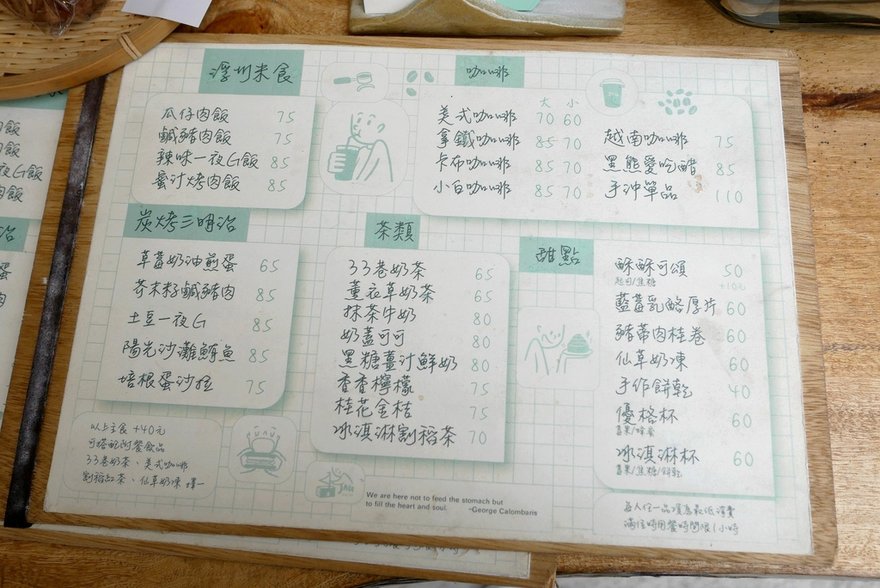 浮州米食
瓜仔肉飯 75
鹹豬肉飯 75
辣味一夜G飯 85
蜜汁烤肉飯 85
炭烤三明治
草莓奶油煎蛋 65
芥末籽鹹豬肉 85
土豆一夜G 85
陽光沙灘鮪魚 85
培根蛋沙拉 75
以上主食 +40元
可搭配附餐飲品
33巷奶茶、美式咖啡
割稻紅茶、仙草奶凍 擇一
咖啡
大 小
美式咖啡 70 60
拿鐵咖啡 85 70
卡布咖啡 85 70
小白咖啡 85 70
越南咖啡 75
黑熊愛吃醋 85
手沖單品 110
茶類
33巷奶茶 65
薰衣草奶茶 65
抹茶牛奶 80
奶蓋可可 80
黑糖薑汁鮮奶 80
香香檸檬 75
桂花金桔 75
冰淇淋割稻茶 70
甜點
酥酥可頌 50
起司/焦糖 +10元
藍莓乳酪厚片 60
豬蒂肉桂卷 60
仙草奶凍 60
手作餅乾 40
優格杯 60
冰淇淋杯 60
We are here not to feed the stomach but
to fill the heart and soul. -George Calombaris
每人任一品項為最低消費
滿位時用餐時間限1小時
飯
肉飯
夜G飯
肉飯
治
蛋